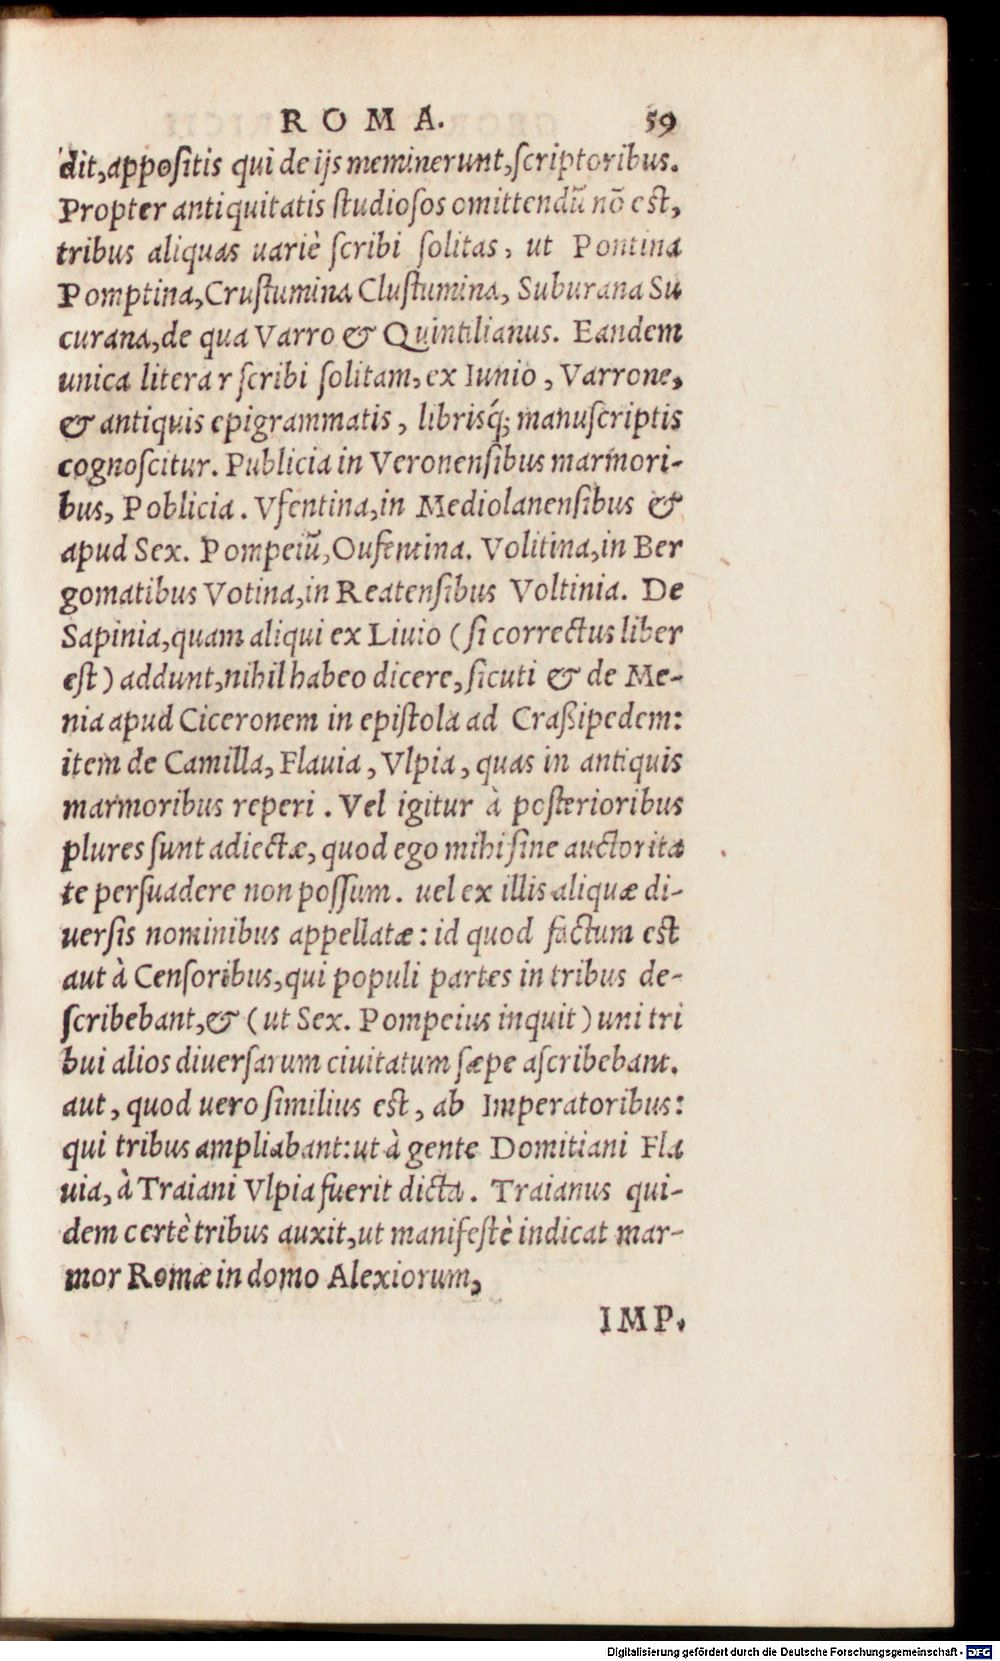 ROMA. 59
dit, appositis qui de ijs meminerunt, scriptoribus.
Propter antiquitatis studiosos omittendũ nõ est,
tribus aliquas uariè scribi solitas, ut Pontina
Pomptina, Crustumina Clustumina, Suburana Su
curana, de qua Varro & Quintilianus. Eandem
unica litera r scribi solitam, ex Iunio, Varrone,
& antiquis epigrammatis, librisq́; manuscriptis
cognoscitur. Publicia in Veronensibus marmori-
bus, Poblicia. Vfentina, in Mediolanensibus &
apud Sex. Pompeiũ, Oufentina. Volitina, in Ber
gomatibus Votina, in Reatensibus Voltinia. De
Sapinia, quam aliqui ex Liuio (si correctus liber
est) addunt, nihil habeo dicere, sicuti & de Me-
nia apud Ciceronem in epistola ad Craßipedem:
item de Camilla, Flauia, Vlpia, quas in antiquis
marmoribus reperi. Vel igitur à posterioribus
plures sunt adiectæ, quod ego mihi sine auctorita
te persuadere non possum. uel ex illis aliquæ di-
uersis nominibus appellatæ: id quod factum est
aut à Censoribus, qui populi partes in tribus de-
scribebant, & (ut Sex. Pompeius inquit) uni tri
bui alios diuersarum ciuitatum sæpe ascribebant.
aut, quod uero similius est, ab Imperatoribus:
qui tribus ampliabant: ut à gente Domitiani Fla
uia, à Traiani Vlpia fuerit dicta. Traianus qui-
dem certè tribus auxit, ut manifestè indicat mar-
mor Romæ in domo Alexiorum,
IMP.
Digitalisierung gefördert durch die Deutsche Forschungsgemeinschaft - DFG